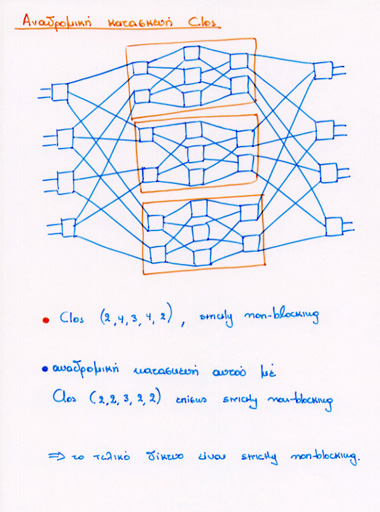 Αναδρομική κατασκευή Clos
• Clos (2,4,3,4,2), strictly non-blocking
• αναδρομική κατασκευή αυτού με
Clos (2,2,3,2,2) επίσης strictly non-blocking
⇒ το τελικό δίκτυο είναι strictly non-blocking.